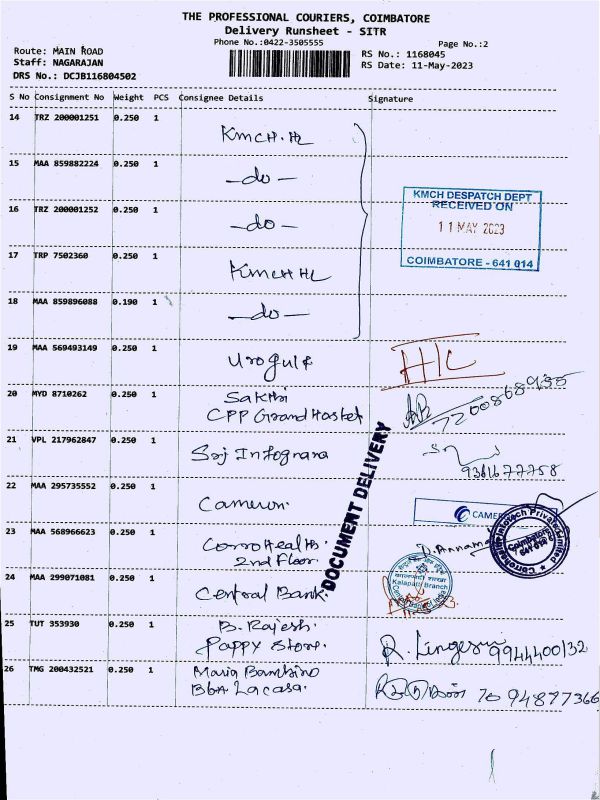 THE PROFESSIONAL COURIERS, COIMBATORE
Delivery Runsheet - SITR
Phone No.:0422-3505555
Page No.:2
Route: MAIN ROAD
Staff: NAGARAJAN
DRS No.: DCJB116804502
RS No.: 1168045
RS Date: 11-May-2023
S No Consignment No Weight PCS Consignee Details Signature
14 TRZ 200001251 0.250 1 KMCH.HL
15 MAA 859882224 0.250 1 -do-
16 TRZ 200001252 0.250 1 -do-
KMCH DESPATCH DEPT
RECEIVED ON
11 MAY 2023
COIMBATORE - 641 014
17 TRP 7502360 0.250 1 KMCH HL
18 MAA 859896088 0.190 1 -do-
19 MAA 569493149 0.250 1 Urogulf
20 MYD 8710262 0.250 1 Sakthi
CPP Grand Hostel
21 VPL 217962847 0.250 1 Sri
22 MAA 295735552 0.250 1 Cameron.
DOCUMENT DELIVERY
23 MAA 568966623 0.250 1 CorroHealth.
2nd Floor.
Coimbatore
641 014
24 MAA 299071081 0.250 1 Central Bank.
Kalapatti Branch
25 TUT 353930 0.250 1 B. Rajesh.
Pappy Store.
R. 9944400132
26 TMG 200432521 0.250 1 Maria Bambino